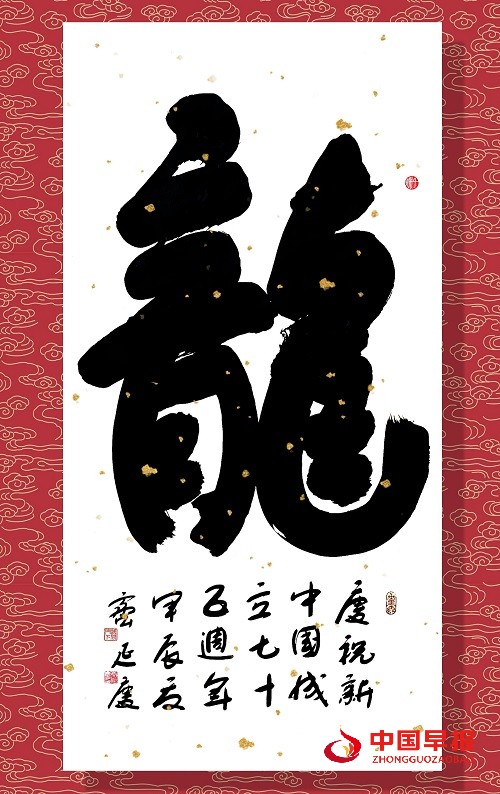 龍
慶祝新
中國成
立七十
五週年
甲辰夏
延慶
中国早报
ZHONGGUOZAOBAO